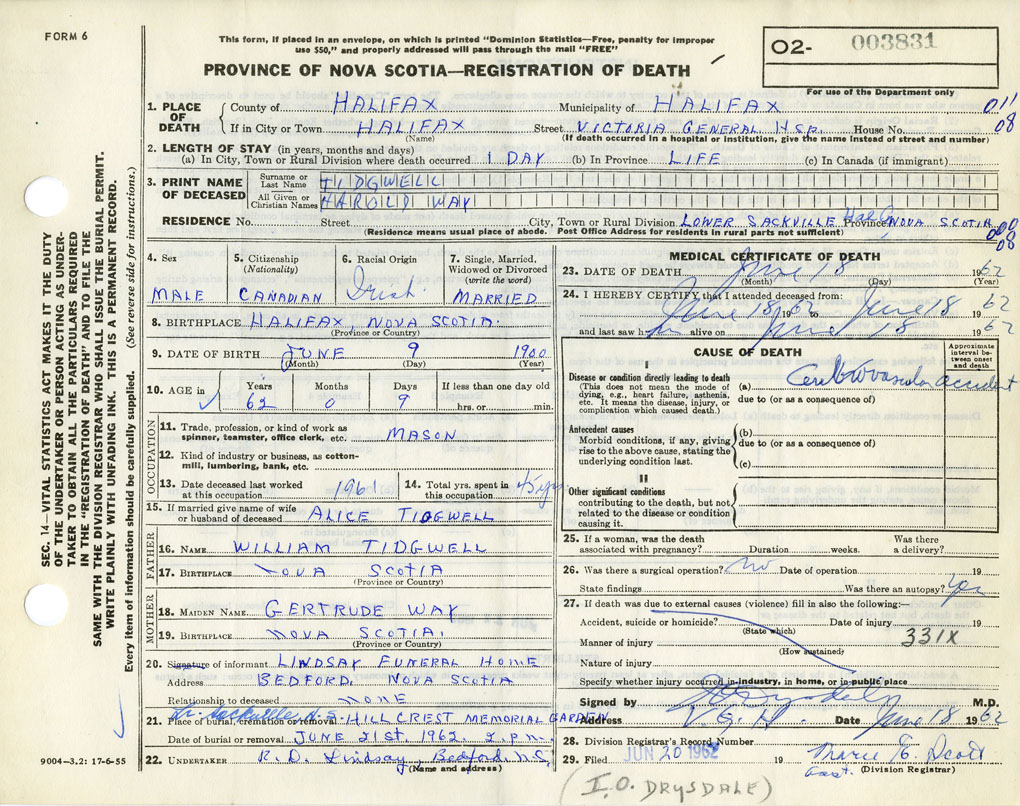 FORM 6
This form, if placed in an envelope, on which is printed "Dominion Statistics—Free, penalty for improper
use $50," and properly addressed will pass through the mail "FREE"
PROVINCE OF NOVA SCOTIA—REGISTRATION OF DEATH
O2- 003831
For use of the Department only
1. PLACE OF DEATH
County of HALIFAX Municipality of HALIFAX 011
If in City or Town HALIFAX Street VICTORIA GENERAL HSP. House No. 08
(Name) (If death occurred in a hospital or institution, give the name instead of street and number)
2. LENGTH OF STAY (in years, months and days)
(a) In City, Town or Rural Division where death occurred 1 DAY (b) In Province LIFE (c) In Canada (if immigrant)
3. PRINT NAME OF DECEASED
Surname or Last Name TIDGWELL
All Given or Christian Names HAROLD WAY
RESIDENCE No. Street City, Town or Rural Division LOWER SACKVILLE Province NOVA SCOTIA
(Residence means usual place of abode. Post Office Address for residents in rural parts not sufficient)
000
08
4. Sex
MALE
5. Citizenship
(Nationality)
CANADIAN
6. Racial Origin
Irish
7. Single, Married,
Widowed or Divorced
(write the word)
MARRIED
8. BIRTHPLACE HALIFAX, NOVA SCOTIA.
(Province or Country)
9. DATE OF BIRTH JUNE 9 1900
(Month) (Day) (Year)
10. AGE in
Years Months Days If less than one day old
62 0 9 hrs. or min.
OCCUPATION
11. Trade, profession, or kind of work as
spinner, teamster, office clerk, etc. MASON
12. Kind of industry or business, as cotton-
mill, lumbering, bank, etc.
13. Date deceased last worked
at this occupation 1961
14. Total yrs. spent in
this occupation 45 yrs
15. If married give name of wife
or husband of deceased ALICE TIDGWELL
FATHER
16. NAME WILLIAM TIDGWELL
17. BIRTHPLACE NOVA SCOTIA
(Province or Country)
MOTHER
18. MAIDEN NAME GERTRUDE WAY
19. BIRTHPLACE NOVA SCOTIA.
(Province or Country)
20. Signature of informant LINDSAY FUNERAL HOME
Address BEDFORD, NOVA SCOTIA
Relationship to deceased NONE
Lr. Sackville N.S.
21. Place of burial, cremation or removal HILLCREST MEMORIAL GARDEN
Date of burial or removal JUNE 21ST 1962. 2 P.M.
22. UNDERTAKER R. D. Lindsay, Bedford, N.S.
(Name and address)
9004-3.2: 17-6-55
SEC. 14—VITAL STATISTICS ACT MAKES IT THE DUTY
OF THE UNDERTAKER OR PERSON ACTING AS UNDER-
TAKER TO OBTAIN ALL THE PARTICULARS REQUIRED
IN THE "REGISTRATION OF DEATH" AND TO FILE THE
SAME WITH THE DIVISION REGISTRAR WHO SHALL ISSUE THE BURIAL PERMIT.
WRITE PLAINLY WITH UNFADING INK. THIS IS A PERMANENT RECORD.
Every item of information should be carefully supplied. (See reverse side for instructions.)
MEDICAL CERTIFICATE OF DEATH
23. DATE OF DEATH June 18 1962
(Month) (Day) (Year)
24. I HEREBY CERTIFY, that I attended deceased from:
June 18 1962 to June 18 1962
and last saw him alive on June 18 1962
CAUSE OF DEATH
Approximate
interval be-
tween onset
and death
I
Disease or condition directly leading to death
(This does not mean the mode of
dying, e.g., heart failure, asthenia,
etc. It means the disease, injury, or
complication which caused death.)
(a) Cerebrovascular accident
due to (or as a consequence of)
Antecedent causes
Morbid conditions, if any, giving
rise to the above cause, stating the
underlying condition last.
(b)
due to (or as a consequence of)
(c)
II
Other significant conditions
contributing to the death, but not
related to the disease or condition
causing it.
25. If a woman, was the death
associated with pregnancy? Duration weeks. Was there
a delivery?
26. Was there a surgical operation? No Date of operation 19
State findings Was there an autopsy? Yes
27. If death was due to external causes (violence) fill in also the following:—
Accident, suicide or homicide? Date of injury 19
(State which)
Manner of injury 331X
(How sustained)
Nature of injury
Specify whether injury occurred in industry, in home, or in public place
Signed by M.D.
Address V.G.H. Date June 18 1962
28. Division Registrar's Record Number
29. Filed JUN 20 1962 19 Marie E. Scott
(Division Registrar)
(I.O. DRYSDALE)